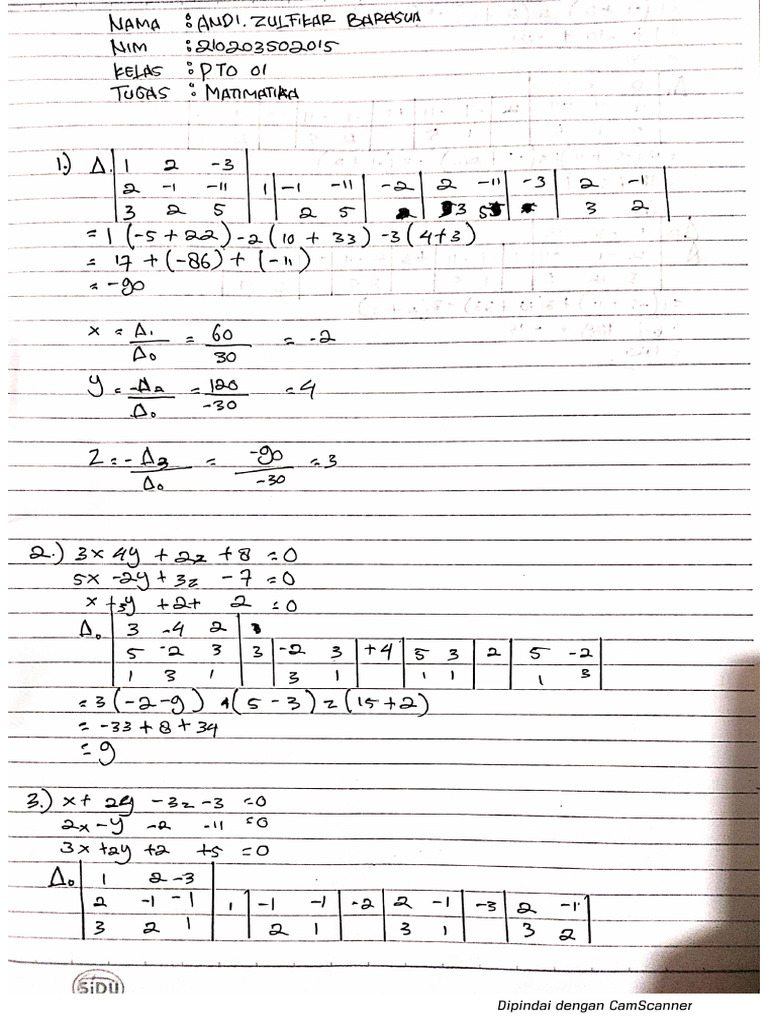 NAMA : ANDI. ZULFIKAR BARASUA
NIM : 210203502015
KELAS : PTO 01
TUGAS : MATIMATIKA
1.) Δ. | 1 2 -3 |
| 2 -1 -11 | 1 | -1 -11 | -2 | 2 -11 | -3 | 2 -1 |
| 3 2 5 | | 2 5 | | 3 5 | | 3 2 |
= 1 (-5 + 22) - 2 (10 + 33) - 3 (4+3)
= 17 + (-86) + (-11)
= -90
x = Δ₁ / Δ₀ = 60 / 30 = -2
y = -Δ₂ / Δ₀ = 120 / -30 = 4
Z = - Δ₃ / Δ₀ = -90 / -30 = 3
2.) 3x 4y + 2z + 8 = 0
5x -2y + 3z - 7 = 0
x + 3y + 2+ 2 = 0
Δ₀ | 3 -4 2 |
| 5 -2 3 | 3 | -2 3 | +4 | 5 3 | 2 | 5 -2 |
| 1 3 1 | | 3 1 | | 1 1 | | 1 3 |
= 3 (-2 - 9) 4 (5 - 3) 2 (15 + 2)
= -33 + 8 + 34
= 9
3.) x + 2y - 3z - 3 = 0
2x - y -2 -11 = 0
3x + 2y + 2 + 5 = 0
Δ₀ | 1 2 -3 |
| 2 -1 -1 | 1 | -1 -1 | -2 | 2 -1 | -3 | 2 -1 |
| 3 2 1 | | 2 1 | | 3 1 | | 3 2 |
SiDU
Dipindai dengan CamScanner